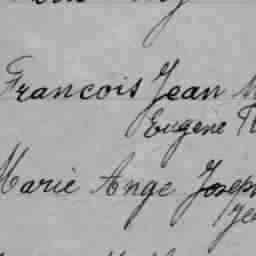 Francois Jean
Eugène
Marie Ange Joseph